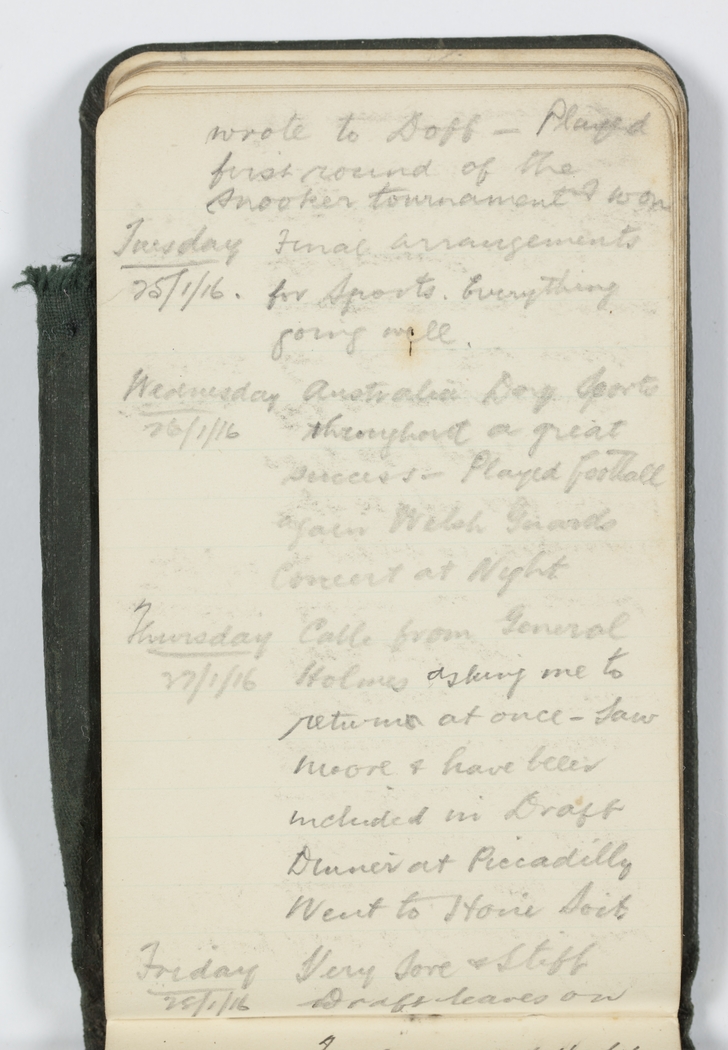 wrote to Doff – Played
first round of the
Snooker tournament & won
Tuesday Final arrangements
25/1/16. for Sports. Everything
going well.
Wednesday Australia Day Sports
26/1/16 throughout a great
success – Played football
again Welsh Guards
Concert at Night
Thursday Cable from General
27/1/16 Holmes asking me to
return at once – Saw
Moore & have been
included in Draft
Dinner at Piccadilly
Went to Honi Soit
Friday Very Sore & Stiff
28/1/16 Draft leaves on